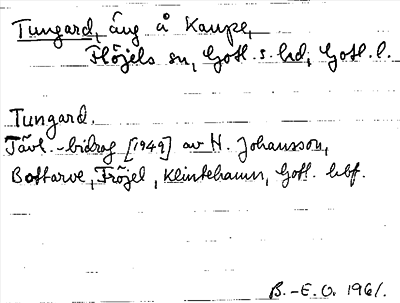 Tungard, äng å Kaupe,
Fröjels sn, Gotl. s. hd, Gotl. l.
Tungard.
Tävl.-bidrag [1949] av H. Johansson,
Bottarve, Fröjel, Klintehamn, Gotl. hbf.
B.-E. O. 1961.